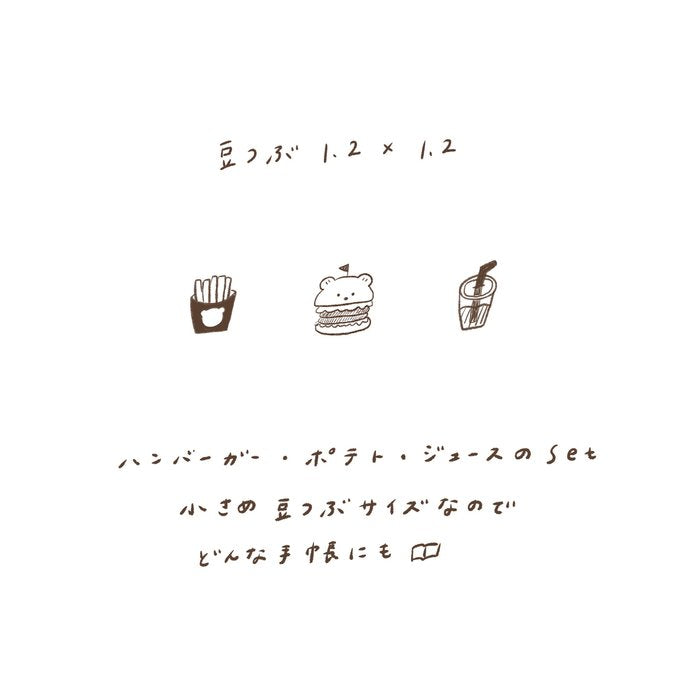 豆つぶ 1.2 × 1.2
ハンバーガー・ポテト・ジュースのset
小きめ 豆つぶサイズなので
どんな手帳にも